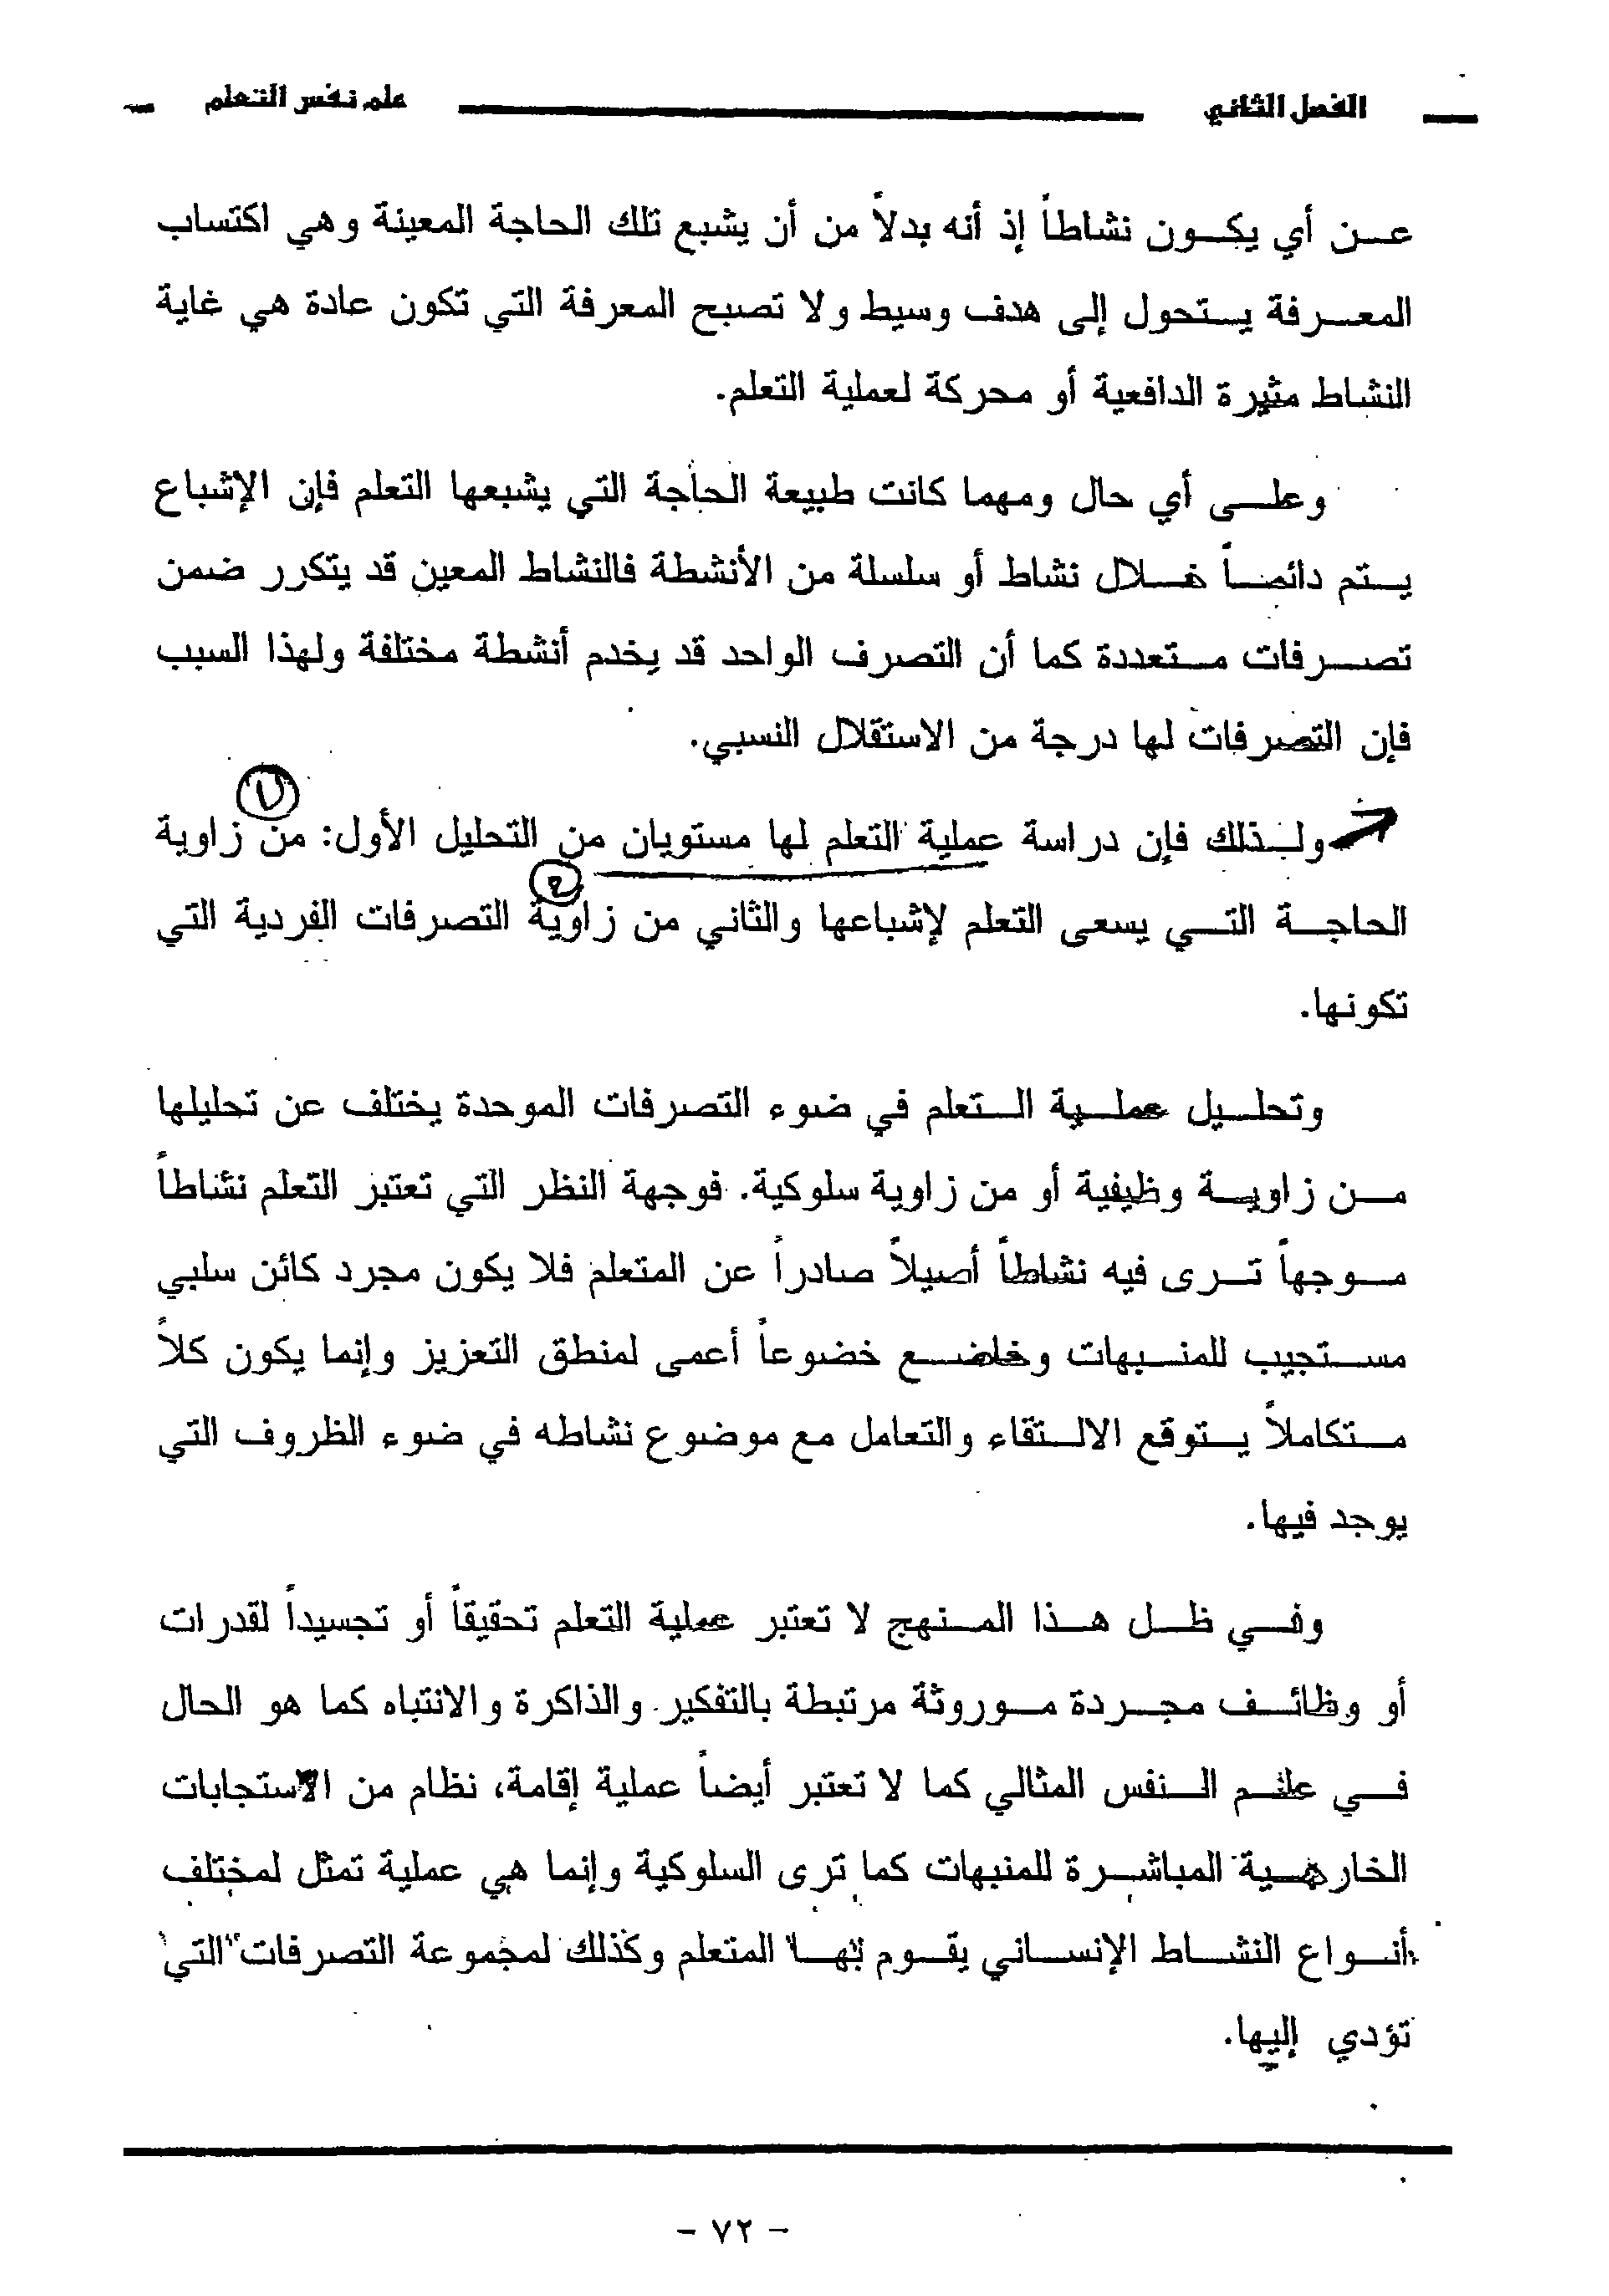 الفصل الثاني علم نفس التعلم
عن أي يكون نشاطاً إذ أنه بدلاً من أن يشبع تلك الحاجة المعينة وهي اكتساب
المعرفة يستحول إلى هدف وسيط ولا تصبح المعرفة التي تكون عادة هي غاية
النشاط مثيرة الدافعية أو محركة لعملية التعلم.
وعلى أي حال ومهما كانت طبيعة الحاجة التي يشبعها التعلم فإن الإشباع
يتم دائماً خلال نشاط أو سلسلة من الأنشطة فالنشاط المعين قد يتكرر ضمن
تصرفات متعددة كما أن التصرف الواحد قد يخدم أنشطة مختلفة ولهذا السبب
فإن التصرفات لها درجة من الاستقلال النسبي.
ولذلك فإن دراسة عملية التعلم لها مستويان من التحليل الأول: من زاوية
الحاجة التي يسعى التعلم لإشباعها والثاني من زاوية التصرفات الفردية التي
تكونها.
وتحليل عملية التعلم في ضوء التصرفات الموحدة يختلف عن تحليلها
من زاوية وظيفية أو من زاوية سلوكية. فوجهة النظر التي تعتبر التعلم نشاطاً
موجهاً ترى فيه نشاطاً أصيلاً صادراً عن المتعلم فلا يكون مجرد كائن سلبي
مستجيب للمنبهات وخاضع خضوعاً أعمى لمنطق التعزيز وإنما يكون كلاً
متكاملاً يتوقع الالتقاء والتعامل مع موضوع نشاطه في ضوء الظروف التي
يوجد فيها.
وفي ظل هذا المنهج لا تعتبر عملية التعلم تحقيقاً أو تجسيداً لقدرات
أو وظائف مجردة موروثة مرتبطة بالتفكير والذاكرة والانتباه كما هو الحال
في علم النفس المثالي كما لا تعتبر أيضاً عملية إقامة، نظام من الاستجابات
الخارجية المباشرة للمنبهات كما ترى السلوكية وإنما هي عملية تمثل لمختلف
أنواع النشاط الإنساني يقوم بها المتعلم وكذلك لمجموعة التصرفات التي
تؤدي إليها.
- ٧٢ -